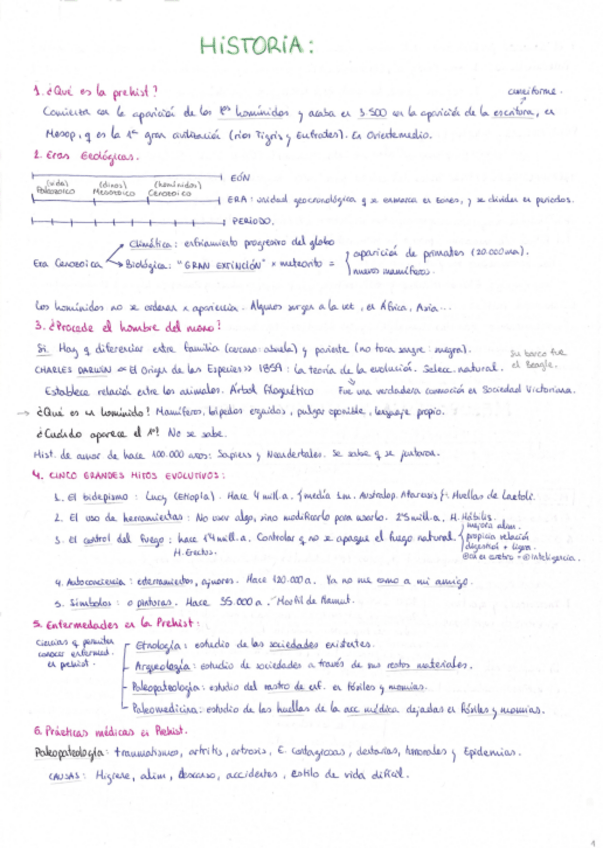 HISTORIA:
1. ¿Qué es la prehist?
cuneiforme.
Comienza con la aparición de los 1os homínidos y acaba en 3.500 con la aparición de la escritura, en
Mesop, q es la 1ª gran civilización (ríos Tigris y Eufrates). En Oriente medio.
2. Eras Geológicas.
EÓN
(vida) (dinos) (homínidos)
Paleozoico Mesozoico Cenozoico
ERA: unidad geocronológica q se enmarca en eones, y se dividen en periodos.
PERIODO.
Era Cenozoica
Climática: enfriamiento progresivo del globo
Biológica: "GRAN EXTINCIÓN" x meteorito =
aparición de primates (20.000ma).
nuevos mamíferos.
Los homínidos no se ordenan x aparición. Algunos surgen a la vez, en África, Asia...
3. ¿Procede el hombre del mono?
Sí. Hay q diferenciar entre familia (cercano: abuela) y pariente (no toca sangre: suegra).
Su barco fue
el Beagle.
CHARLES DARWIN «El Origen de las Especies» 1859: La teoría de la evolución. Selecc. natural.
Establece relación entre los animales. Árbol filogenético
Fue una verdadera conmoción en Sociedad Victoriana.
→ ¿Qué es un homínido? Mamíferos, bípedos erguidos, pulgar oponible, lenguaje propio.
¿Cuándo aparece el 1º? No se sabe.
Hist. de amor de hace 100.000 años: Sapiens y Neandertales. Se sabe q se juntaron.
4. CINCO GRANDES HITOS EVOLUTIVOS:
1. El bidepismo: Lucy (Etiopía). Hace 4 mill.a. media 1m. Australop. Afarensis Huellas de Laetoli.
2. El uso de herramientas: No usar algo, sino modificarlo para usarlo. 2'5 mill.a. H. Hábilis.
3. El control del fuego: hace 1'4 mill.a. Controlar q no se apague el fuego natural.
H. Erectus.
mejora alim.
propicia relación
digestión + ligera.
4. Autoconciencia: enterramientos, ajuares. Hace 120.000 a. Ya no me como a mi amigo.
5. Símbolos: o pinturas. Hace 35.000 a. Marfil de Mamut.
5. Enfermedades en la Prehist:
Ciencias q permiten
conocer enfermed.
en prehist.
Etnología: estudio de las sociedades existentes.
Arqeología: estudio de sociedades a través de sus restos materiales.
Paleopatología: estudio del rastro de enf. en fósiles y momias.
Paleomedicina: estudio de las huellas de la acc médica dejadas en fósiles y momias.
6. Prácticas médicas en Prehist.
Paleopatología: traumatismos, artritis, artrosis, E. Contagiosas, dentarias, tumorales y Epidemias.
CAUSAS: Higiene, alim, Descanso, accidentes, estilo de vida difícil.
1